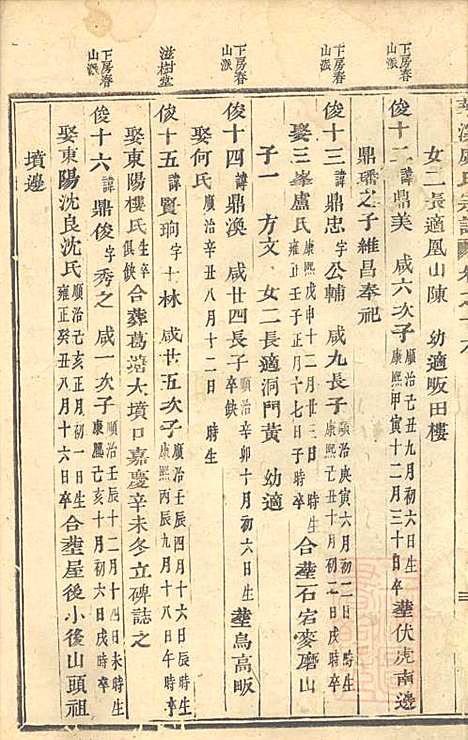 女二長適鳳山陳 幼適畈田樓
下房春山派
俊十二諱鼎美 咸六次子順治己丑九月初六日生康熙甲寅十二月三十日卒塟伏虎南邊
鼎璠之子維昌奉祀
下房春山派
俊十三諱鼎忠字公輔 咸九長子順治庚寅六月初二日 時生康熙己丑十月初十日戌時卒
娶三峯盧氏康熙戊申十二月廿三日 時生雍正甲寅六月十七日子時卒合塟石宕麥磨山
子一 方文 女二長適洞門黃 幼適
下房春山派
俊十四諱鼎渙 咸廿四長子順治辛卯十月初六日生卒缺塟鳥高畈
娶何氏順治辛丑八月十二日 時生
滋樹堂
俊十五諱賢珦字十林 咸廿五次子順治丙辰四月十六日辰時生康熙丙辰九月十八日午時卒
娶東陽樓氏生卒俱缺合葬葛塘大墳口嘉慶辛未冬立碑誌之
下房春山派
俊十六諱鼎俊字秀之 咸一次子順治壬辰十二月十四日未時生康熙己亥十月初六日戌時卒
娶東陽沈良沈氏順治己亥正月初一日 時生雍正癸丑八月十六日卒合塟屋後小後山頭祖
墳邊